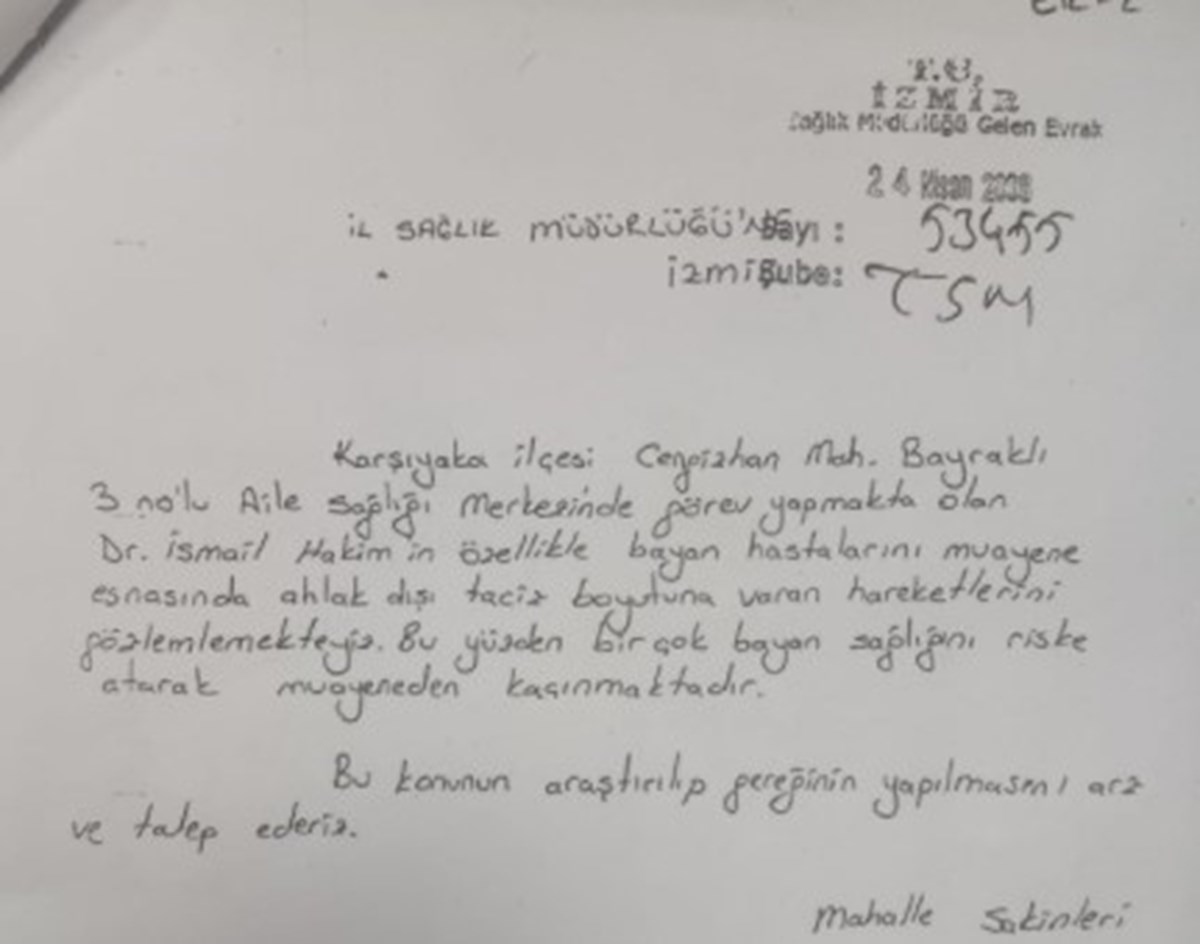 T.C.
İZMİR
Sağlık Müdürlüğü Gelen Evrak
24 Nisan 2008
İL SAĞLIK MÜDÜRLÜĞÜ'NE Sayı: 53455
İzmir Şube: TSM
Karşıyaka ilçesi Cengizhan Mah. Bayraklı
3 no'lu Aile sağlığı Merkezinde görev yapmakta olan
Dr. İsmail Hakim'in özellikle bayan hastalarını muayene
esnasında ahlak dışı taciz boyutuna varan hareketlerini
gözlemlemekteyiz. Bu yüzden bir çok bayan sağlığını riske
atarak muayeneden kaçınmaktadır.
Bu konunun araştırılıp gereğinin yapılmasını arz
ve talep ederiz.
Mahalle Sakinleri